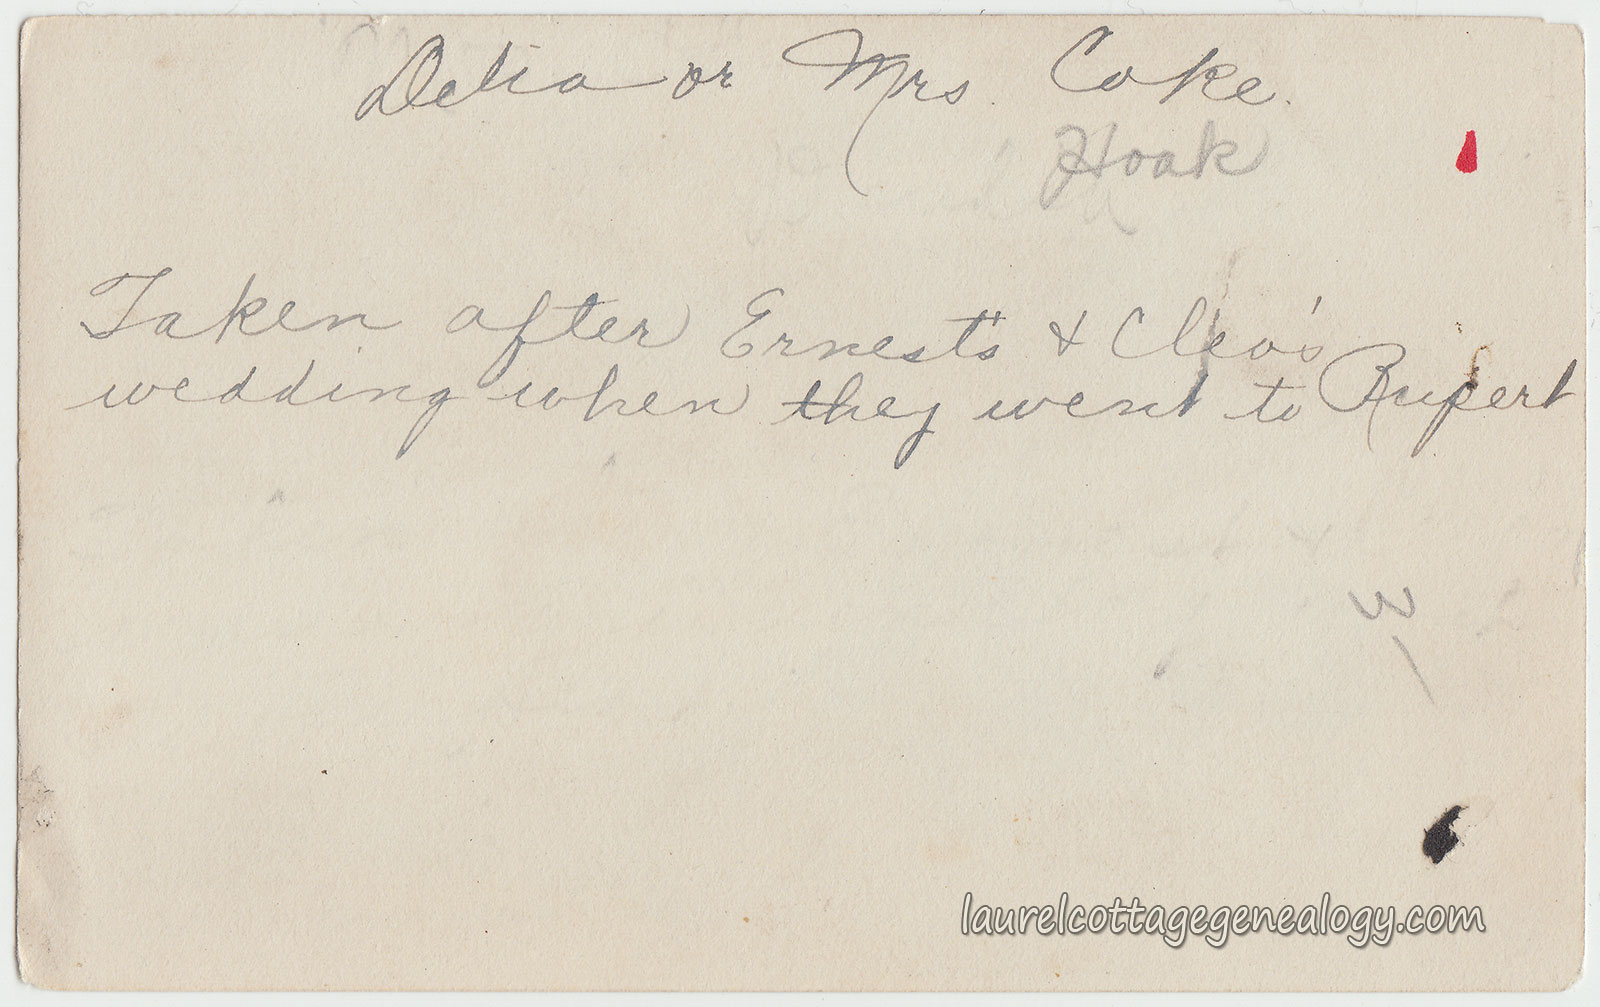 Delia or Mrs. Coke.
Hoak
Taken after Ernest's & Cleo's
wedding when they went to Rupert
laurelcottagegenealogy.com